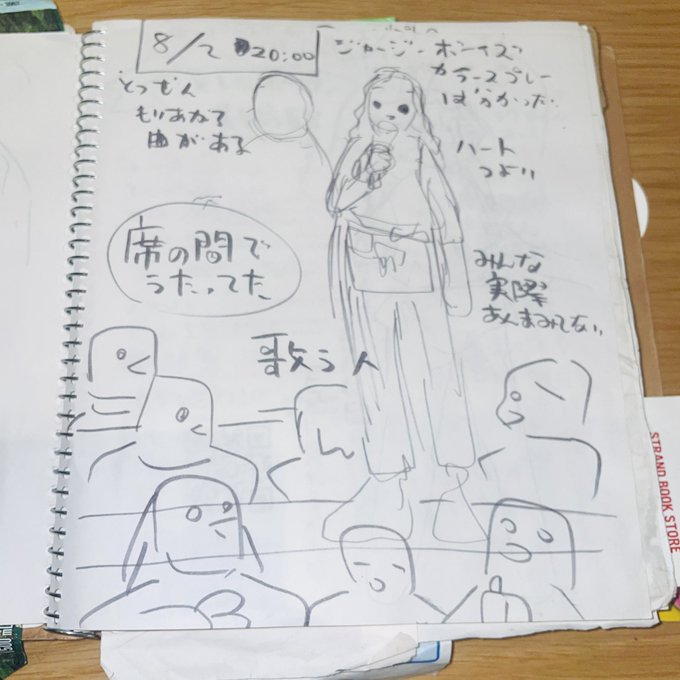 8/2 20:00
ジャージーボーイズ?
カラースプレー
は分かった
とつぜん
もりあがる
曲がある
ハート
つよい
席の間で
うたってた
みんな
実際
あんまみてない
歌う人
STRAND BOOK STORE